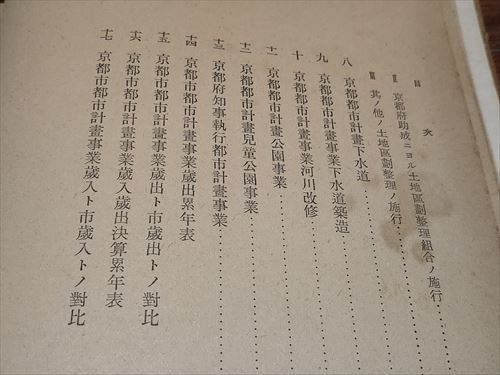 目次
Ⅱ 京都府助成ニヨル土地區劃整理組合ノ施行
Ⅲ 其ノ他ノ土地區劃整理ノ施行
八 京都都市計畫下水道
九 京都都市計畫事業下水道築造
十 京都都市計畫事業河川改修
十一 京都都市計畫公園事業
十二 京都都市計畫兒童公園事業
十三 京都府知事執行都市計畫事業
十四 京都市都市計畫事業歲出累年表
十五 京都市都市計畫事業歲出ト市歲出トノ對比
十六 京都市都市計畫事業歲入歲出決算累年表
十七 京都市都市計畫事業歲入ト市歲入トノ對比